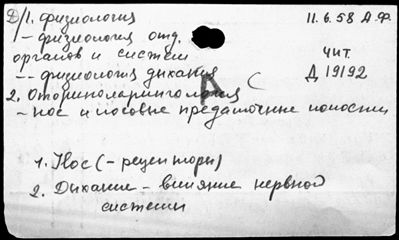 Д/1. физиология
11.6.58 А.Ф.
1 – физиология отд.
органов и систем
чит.
-- физиология дыхания
Д 19192
2. Оториноларингология
– нос и носовые придаточные полости
1. Нос (– рецепторы)
2. Дыхание – влияние нервной
системы